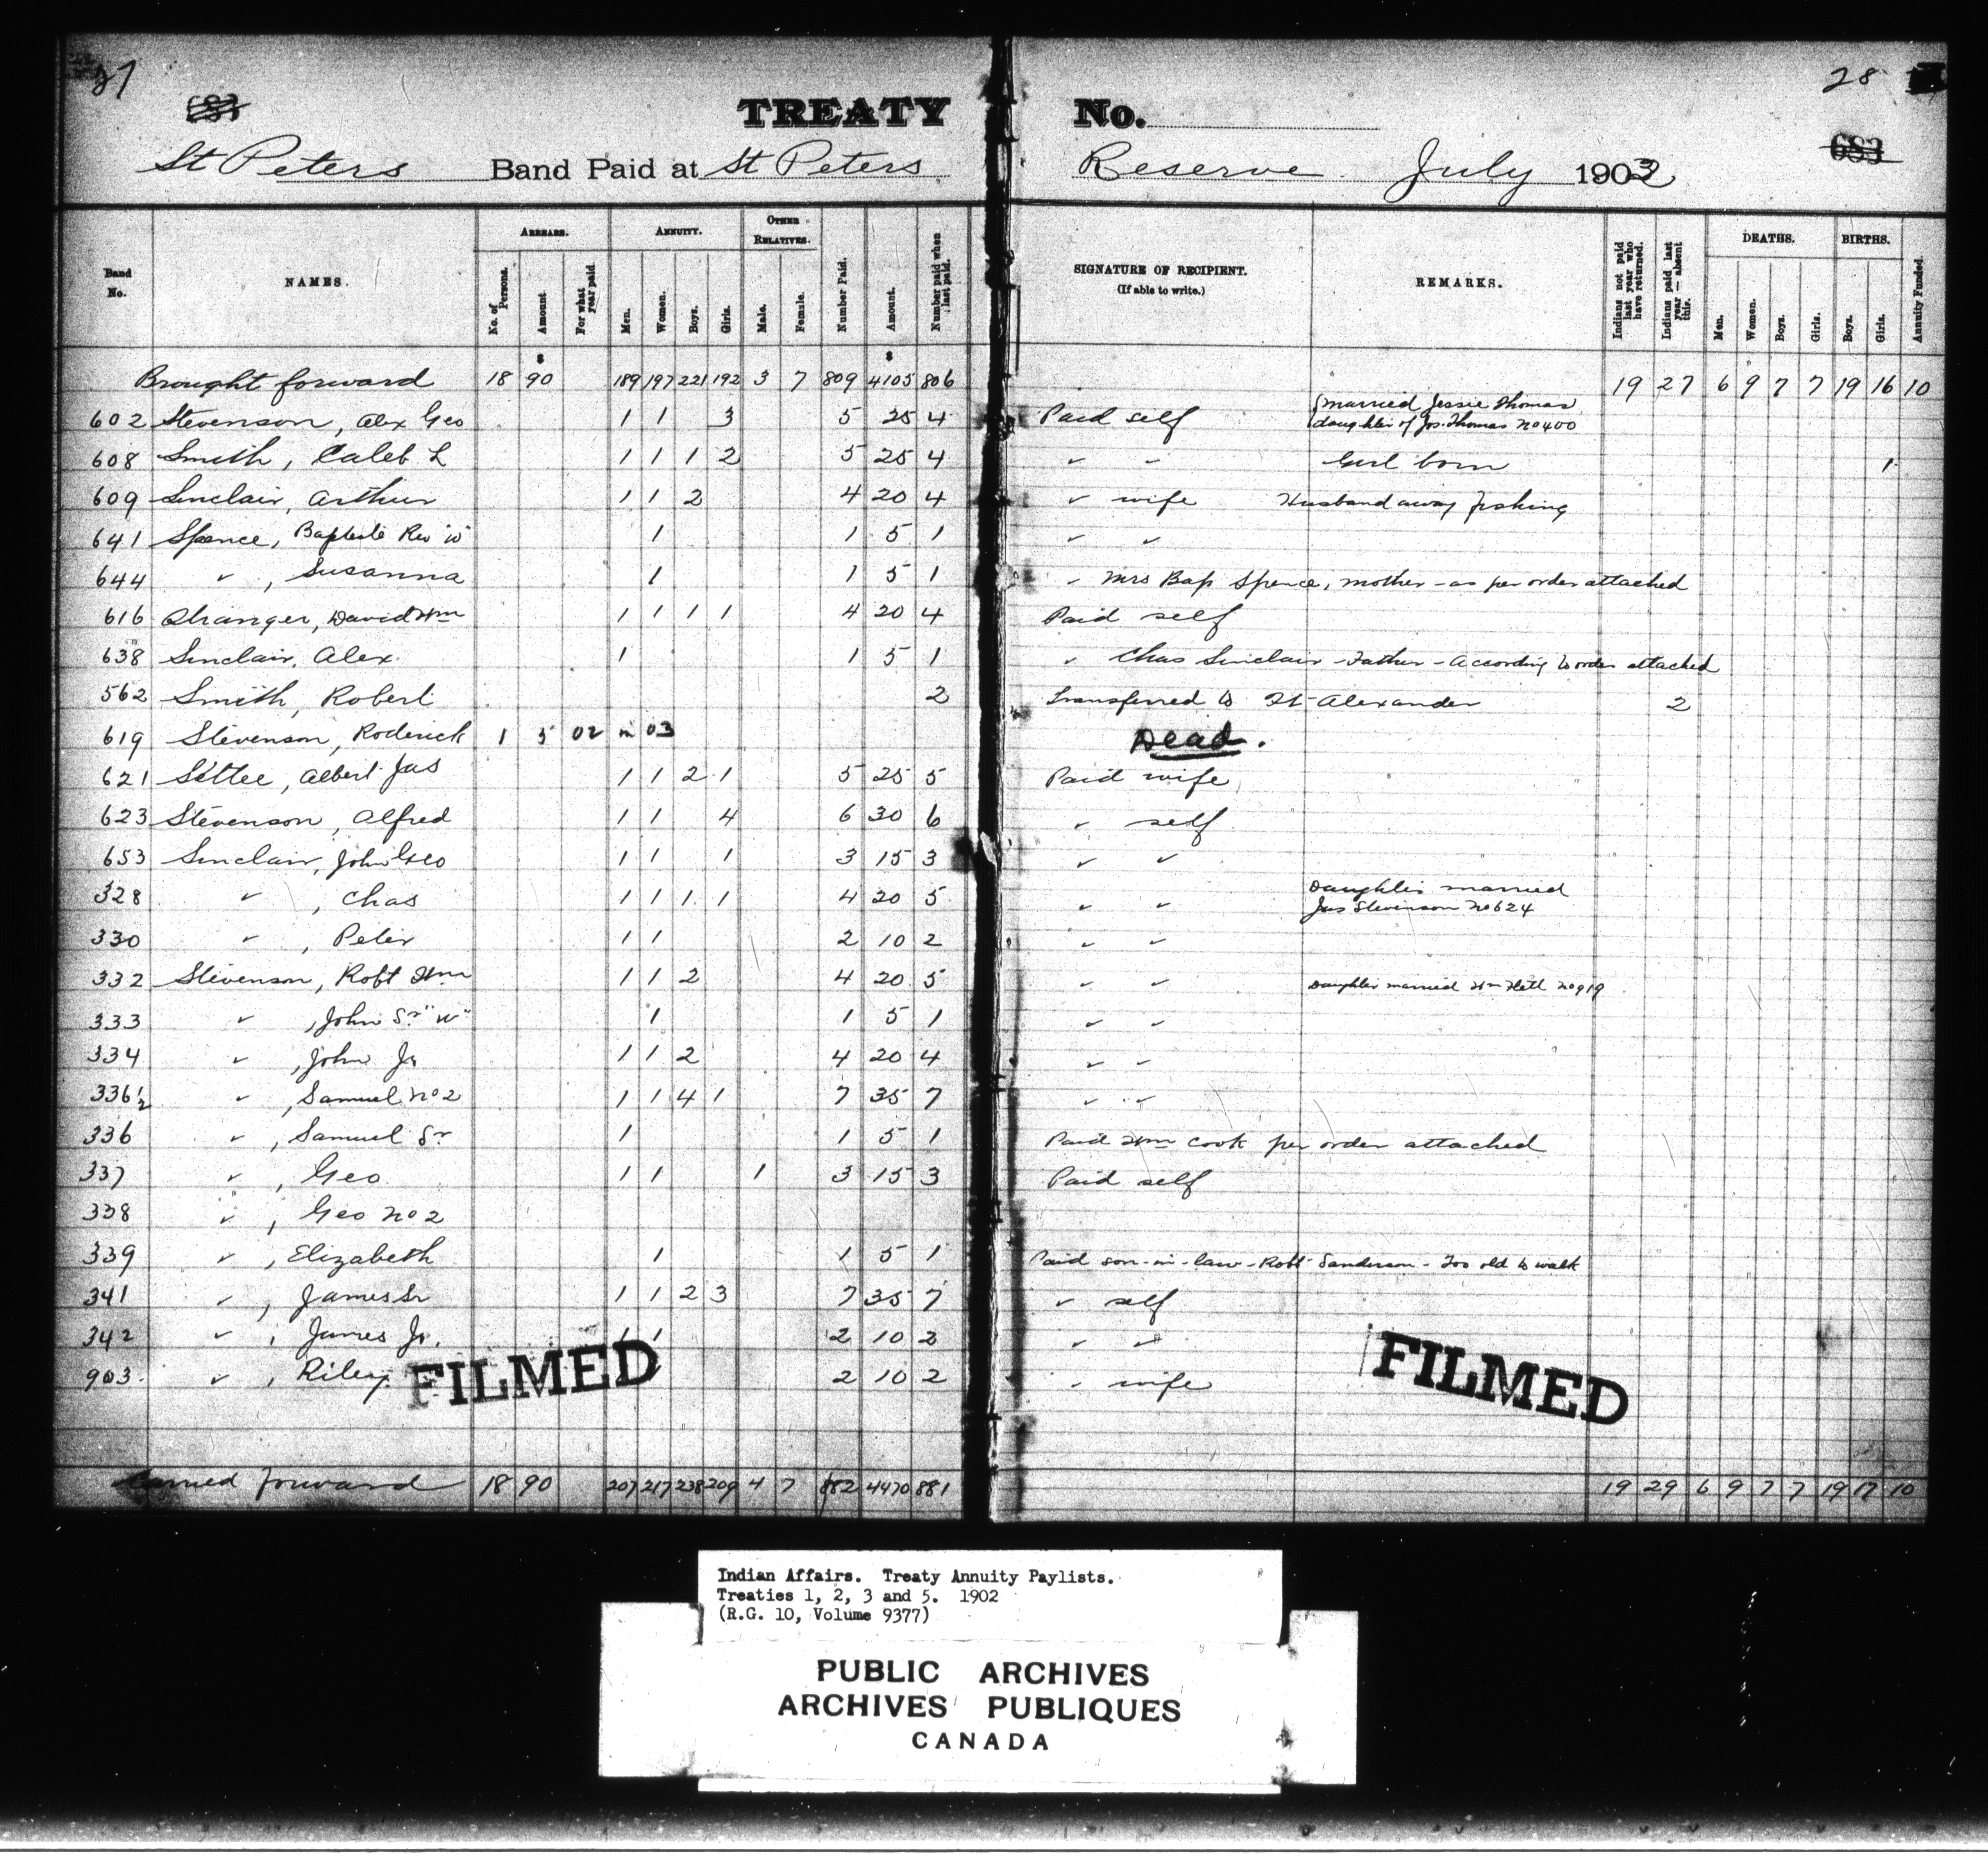 27 28
683 683
TREATY No.
St Peters Band Paid at St Peters Reserve July 1902
Band No. NAMES. ARREARS. No. of Persons. Amount For what year paid ANNUITY. Men. Women. Boys. Girls. OTHER RELATIVES. Male. Female. Number Paid. Amount. Number paid when last paid. SIGNATURE OF RECIPIENT. (If able to write.) REMARKS. Indians not paid last year who have returned. Indians paid last year — absent this. DEATHS. Men. Women. Boys. Girls. BIRTHS. Boys. Girls. Annuity Funded.
$ $
Brought forward 18 90 189 197 221 192 3 7 809 4105 806 19 27 6 9 7 7 19 16 10
602 Stevenson, Alex Geo 1 1 3 5 25 4 Paid self married Jessie Thomas
daughter of Jos. Thomas No 400
608 Smith, Caleb L 1 1 1 2 5 25 4 " " Girl born 1
609 Sinclair, Arthur 1 1 2 4 20 4 " wife Husband away fishing
641 Spence, Baptiste Rev "W" 1 1 5 1 " "
644 " , Susanna 1 1 5 1 " Mrs Bap Spence, mother - as per order attached
616 Stranger, David Wm 1 1 1 1 4 20 4 Paid self
638 Sinclair, Alex. 1 1 5 1 " Chas Sinclair - Father - According to order attached
562 Smith, Robert 2 Transferred to Ft Alexander 2
619 Stevenson, Roderick 1 5 02 in 03 Dead.
621 Settee, Albert Jas 1 1 2 1 5 25 5 Paid wife
623 Stevenson, Alfred 1 1 4 6 30 6 " self
653 Sinclair, John Geo 1 1 1 3 15 3 " "
328 " , Chas 1 1 1 1 4 20 5 " " Daughter married
Jas Stevenson No 624
330 " , Peter 1 1 2 10 2 " "
332 Stevenson, Robt Wm 1 1 2 4 20 5 " " Daughter married Wm Flett No 919
333 " , John Sr "W" 1 1 5 1 " "
334 " , John Jr 1 1 2 4 20 4 " "
336½ " , Samuel No 2 1 1 4 1 7 35 7 " "
336 " , Samuel Sr 1 1 5 1 Paid Wm Cook per order attached
337 " , Geo. 1 1 1 3 15 3 Paid self
338 " , Geo No 2
339 " , Elizabeth 1 1 5 1 Paid son-in-law - Robt Sanderson - Too old to walk
341 " , James Sr 1 1 2 3 7 35 7 " self
342 " , James Jr. 1 1 2 10 2 " "
903 " , Riley 2 10 2 " wife
FILMED FILMED
Carried forward 18 90 207 217 238 209 4 7 882 4470 881 19 29 6 9 7 7 19 17 10
Indian Affairs. Treaty Annuity Paylists.
Treaties 1, 2, 3 and 5. 1902
(R.G. 10, Volume 9377)
PUBLIC ARCHIVES
ARCHIVES PUBLIQUES
CANADA